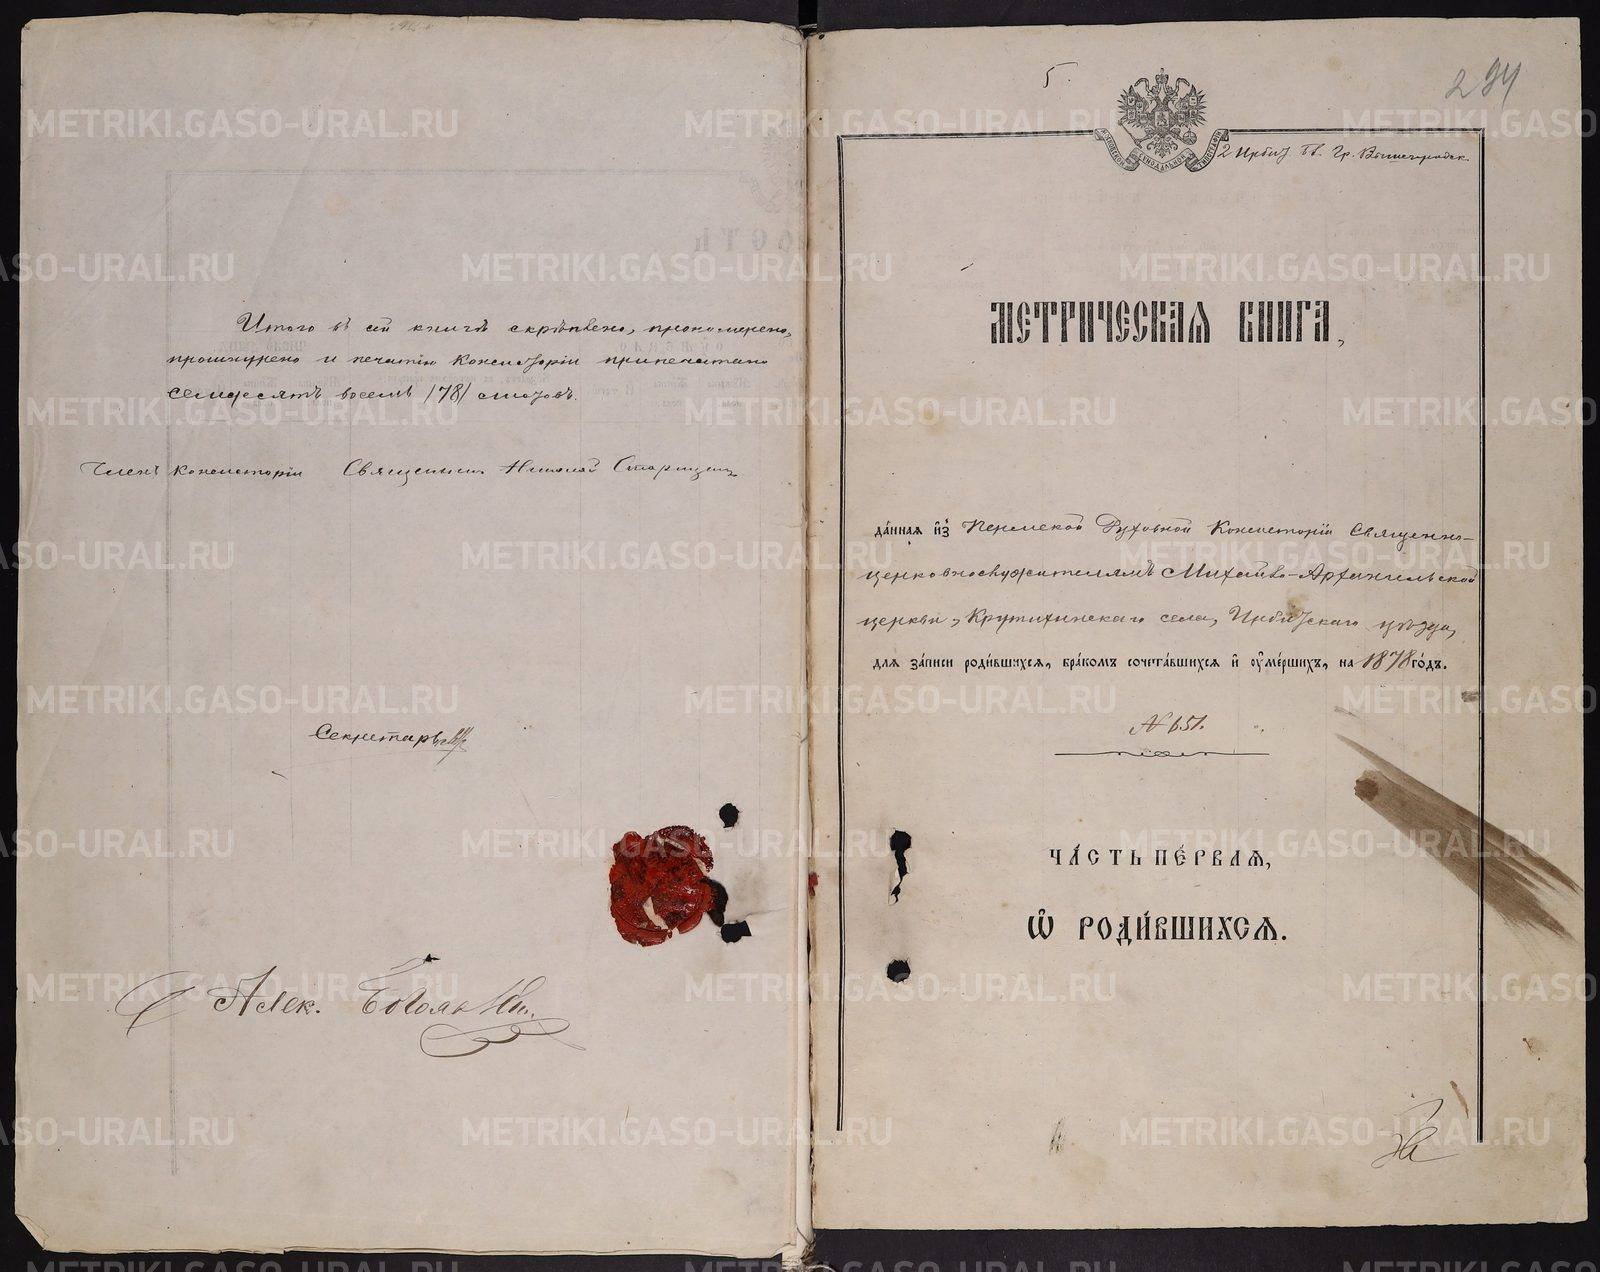 Итого въ сей книгѣ скрѣплено, прономерено,
прошнурено и печатію Консисторіи припечатано
семьдесятъ восемь /78/ листовъ.
Членъ Консисторіи Священникъ Николай
Секретарь
Алек.
5.
294
МОСКОВСКОЙ СѴНОДАЛЬНОЙ ТИПОГРАФІИ
2 Ирбит. бл.
МЕТРИЧЕСКАЯ КНИГА,
да́нная и҆зъ Пермской Духовной Консисторіи Священно-
церковнослужителямъ Михаило-Архангельской
церкви, Крутихинскаго села, Ирбитскаго уѣзда,
для за́писи роди́вшихсѧ, бра́комъ сочета́вшихсѧ и҆ ᲂу҆ме́ршихъ, на 1878 го́дъ.
№ 651.
ЧА́СТЬ ПЕ́РВАѦ,
Ѽ РОДИ́ВШИХСѦ.
METRIKI.GASO-URAL.RU